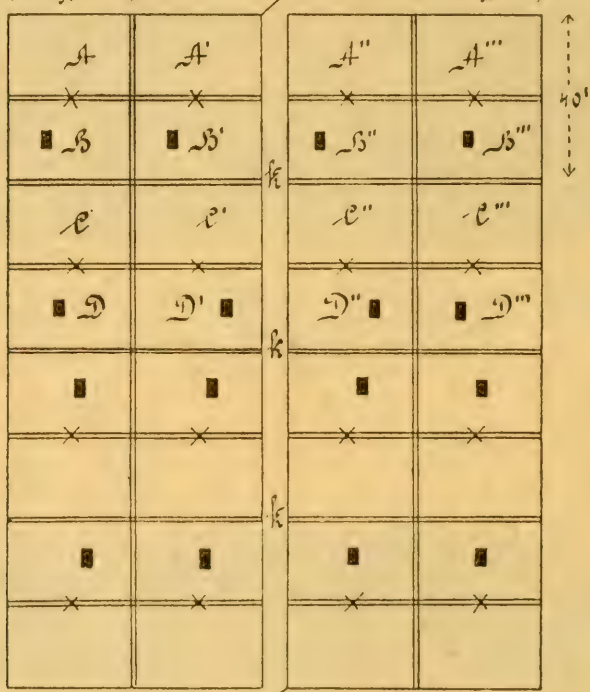 A A' A'' A'''
40'
B B' B'' B'''
k
C C' C'' C'''
D D' D'' D'''
k
k